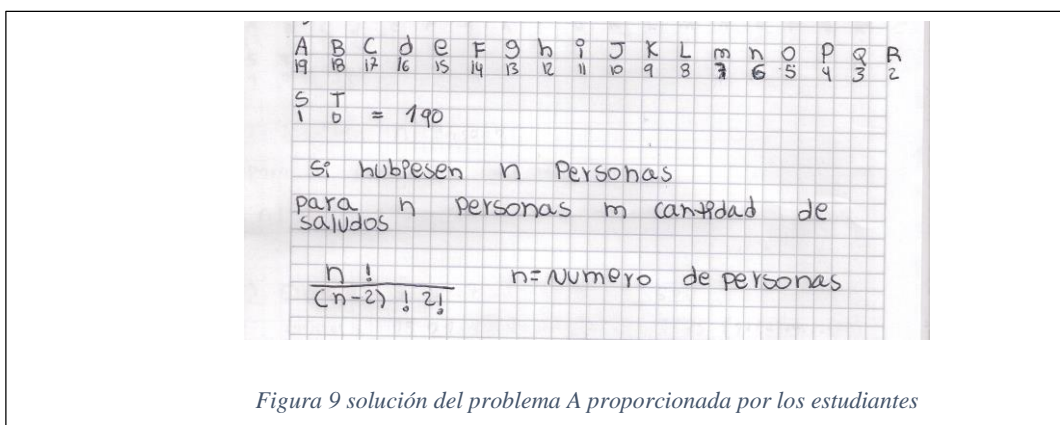 A B C d e F g h i J K L m n O P Q R
19 18 17 16 15 14 13 12 11 10 9 8 7 6 5 4 3 2
S T
1 0 = 190
Si hubiesen n Personas
para n personas m cantidad de
saludos
n !
(n-2) ! 2!
n= Numero de personas
Figura 9 solución del problema A proporcionada por los estudiantes